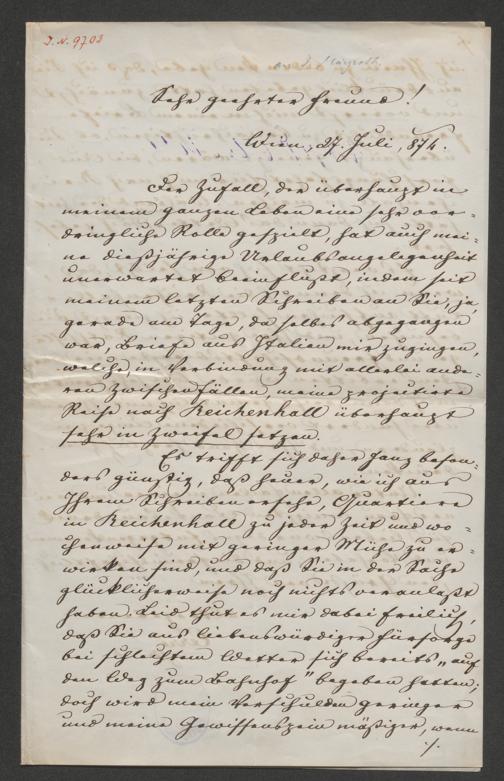 I. N. 9703
Sehr geehrter Freund!
Wien, 27. Juli, 874.
Der Zufall, der überhaupt in
meinem ganzen Leben eine sehr vor-
dringliche Rolle gespielt, hat auch mei-
ne dießjährige Urlaubsangelegenheit
unerwartet beeinflußt, indem seit
meinem letzten Schreiben an Sie, ja,
gerade am Tage, da selbes abgegangen
war, Briefe aus Italien mir zugingen,
welche, in Verbindung mit allerlei ande-
ren Zwischenfällen, meine projectirte
Reise nach Reichenhall überhaupt
sehr in Zweifel setzen.
Es trifft sich daher ganz beson-
ders günstig, daß heuer, wie ich aus
Ihrem Schreiben ersehe, Quartiere
in Reichenhall zu jeder Zeit und wo-
chenweise mit geringer Mühe zu er-
wirken sind, und daß Sie in der Sache
glücklicherweise noch nichts veranlaßt
haben. Leid thut es mir dabei freilich,
daß Sie aus liebenswürdiger Fürsorge
bei schlechtem Wetter sich bereits „auf
den Weg zum Bahnhof" begeben hatten;
doch wird mein Verschulden geringer
und meine Gewissenspein mäßiger, wenn
./.